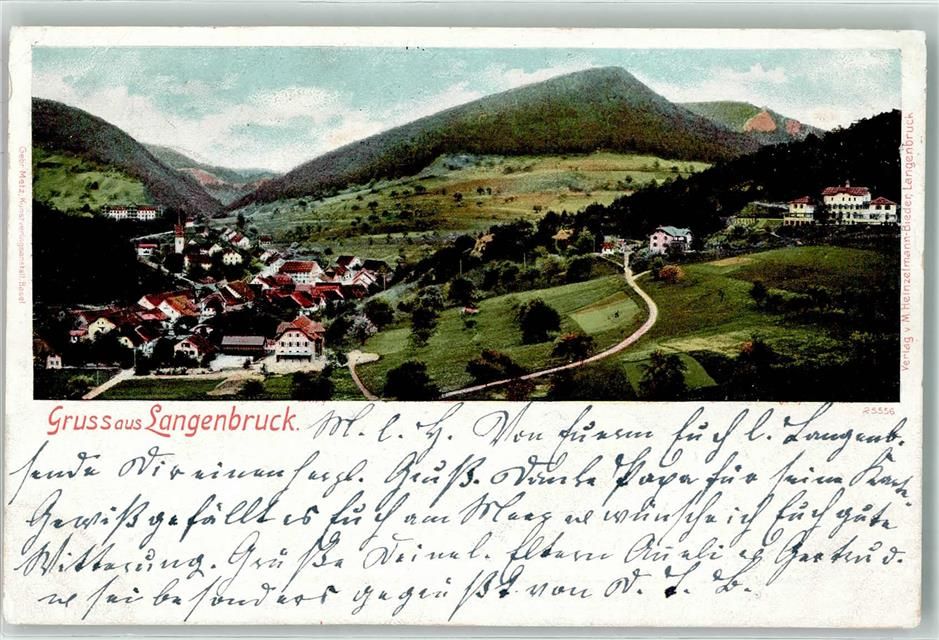 Gebr. Metz, Kunstverlagsanstalt, Basel
Verlag v. M. Heinzelmann-Bieder, Langenbruck
25556
Gruss aus Langenbruck.
M. l. H. Von Eurem Euch l. Langenb.
sende Dir einen herzl. Gruß. Danke Papa für seine Karte
Gewiß gefällt es Euch am Meer wünsche ich Euch gute
Witterung. Grüße Deine l. Eltern Gertrud.
sei besonders gegrüßt von D. L. B.